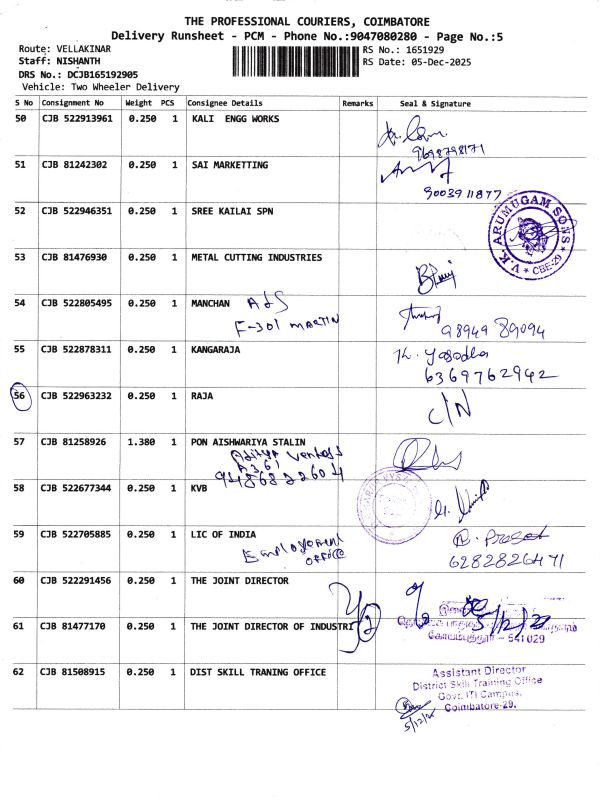 THE PROFESSIONAL COURIERS, COIMBATORE
Delivery Runsheet - PCM - Phone No.:9047080280 - Page No.:5
Route: VELLAKINAR
RS No.: 1651929
Staff: NISHANTH
RS Date: 05-Dec-2025
DRS No.: DCJB165192905
Vehicle: Two Wheeler Delivery
S No Consignment No Weight PCS Consignee Details Remarks Seal & Signature
50 CJB 522913961 0.250 1 KALI ENGG WORKS
9698798171
51 CJB 81242302 0.250 1 SAI MARKETTING
9003911877
52 CJB 522946351 0.250 1 SREE KAILAI SPN
V.K. ARUMUGAM SONS
* CBE-29 *
53 CJB 81476930 0.250 1 METAL CUTTING INDUSTRIES
54 CJB 522805495 0.250 1 MANCHAN AdS
F-301 MARTIN
98949 89094
55 CJB 522878311 0.250 1 KANGARAJA
K. Yasodha
6369762942
56 CJB 522963232 0.250 1 RAJA
C/N
57 CJB 81258926 1.380 1 PON AISHWARIYA STALIN
Aditya
A361
9486822604
58 CJB 522677344 0.250 1 KVB
59 CJB 522705885 0.250 1 LIC OF INDIA
Employement
office
6282826471
60 CJB 522291456 0.250 1 THE JOINT DIRECTOR
61 CJB 81477170 0.250 1 THE JOINT DIRECTOR OF INDUSTRI
- 641 029
62 CJB 81508915 0.250 1 DIST SKILL TRANING OFFICE
Assistant Director
District Skill Training Office
Govt. ITI Campus,
Coimbatore-29.
5/12/25